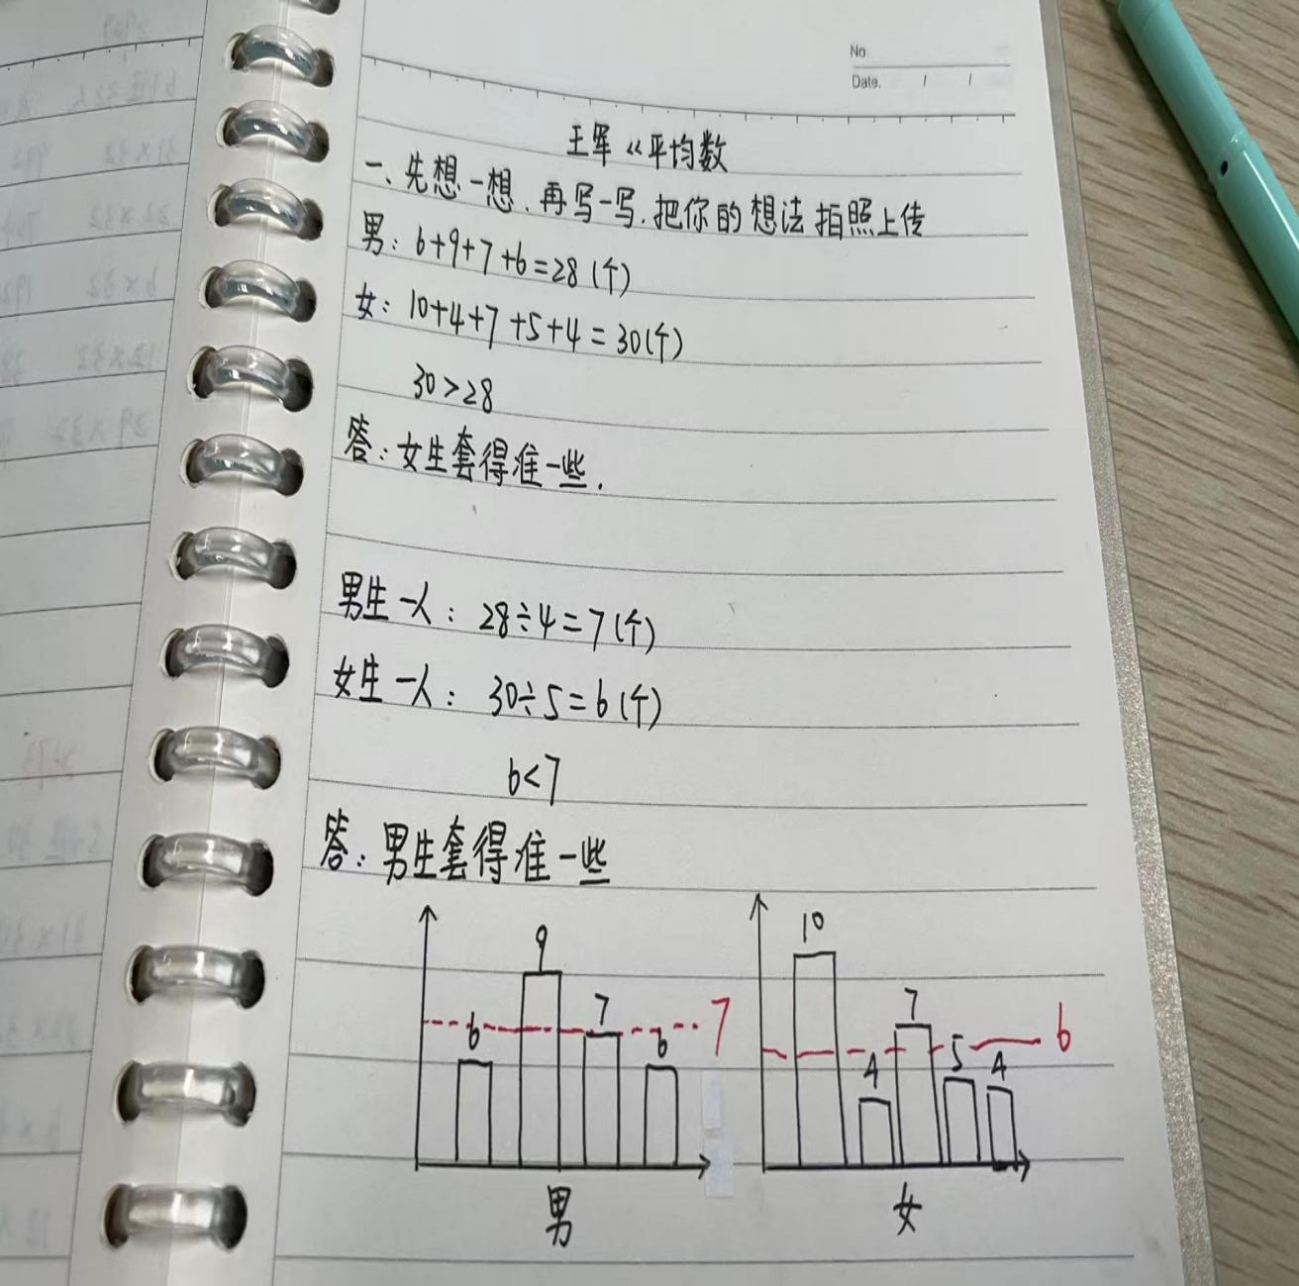 No.
Date. / /
王军《平均数
一、先想一想.再写一写.把你的想法拍照上传
男：6+9+7+6=28(个)
女：10+4+7+5+4=30(个)
30>28
答：女生套得准一些.
男生一人：28÷4=7(个)
女生一人：30÷5=6(个)
6<7
答：男生套得准一些
6 9 7 6 7
男
10 4 7 5 4 6
女